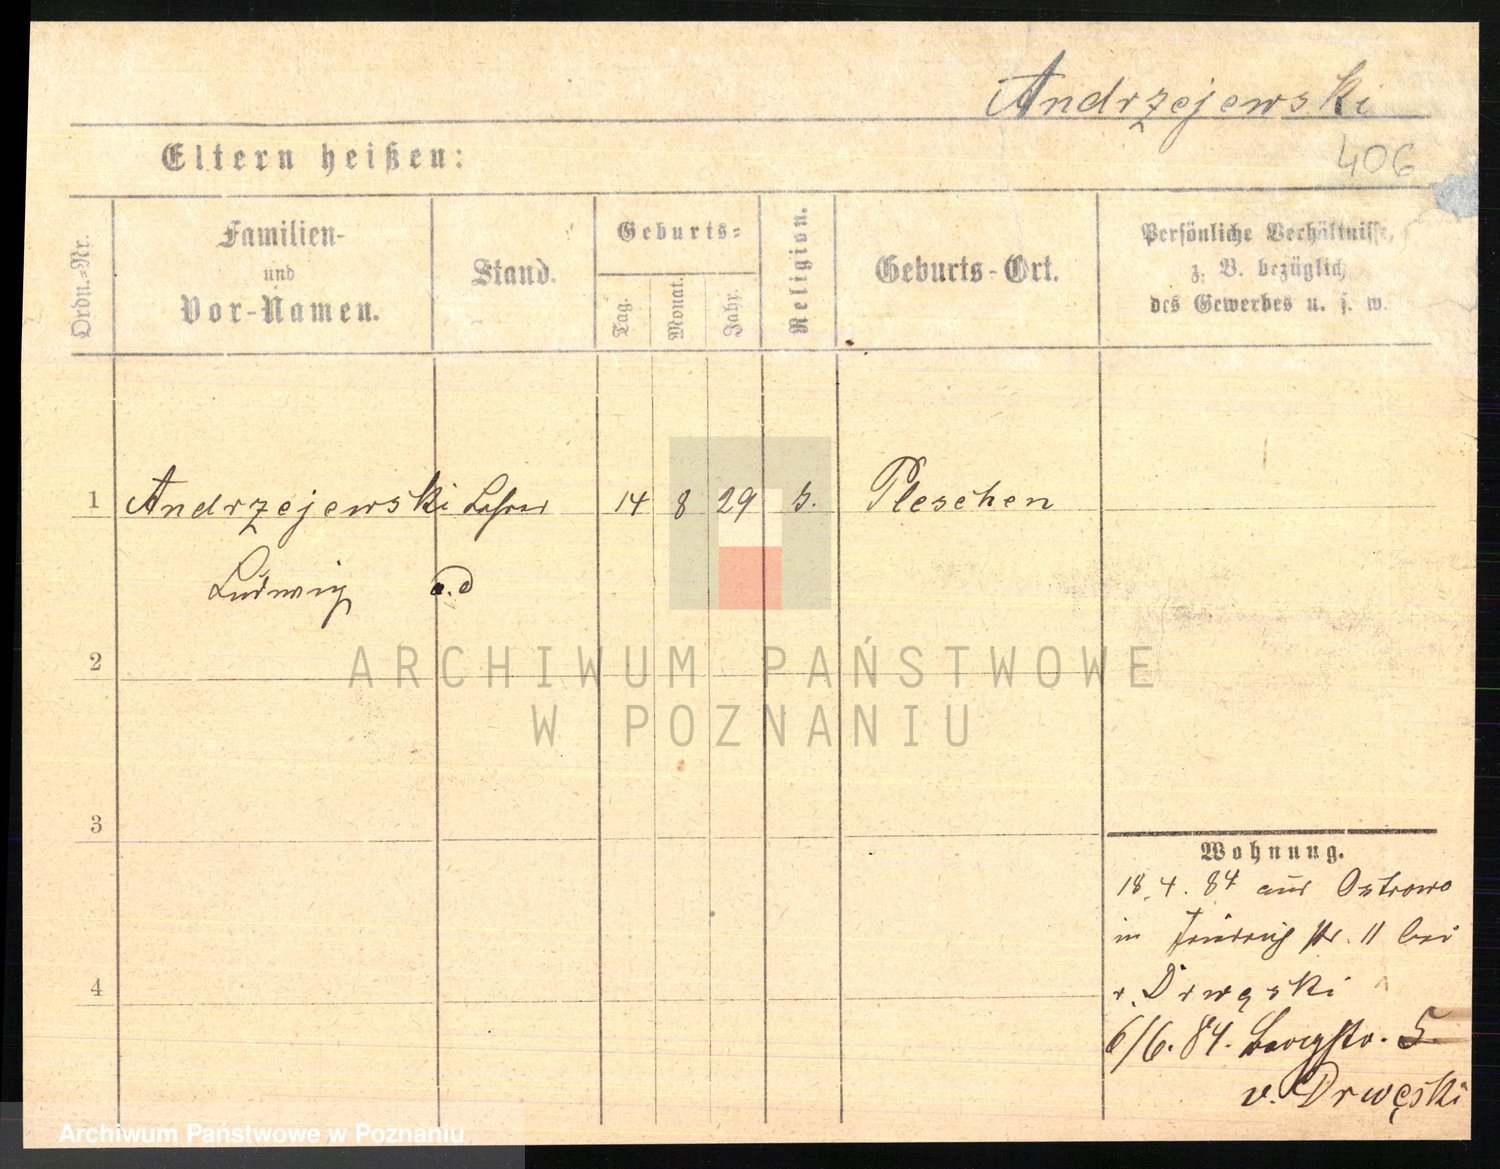 Andrzejewski
Eltern heißen:
406
Ordn.-Nr.
Familien-
und
Vor-Namen.
Stand.
Geburts-
Tag.
Monat.
Jahr.
Religion.
Geburts-Ort.
Persönliche Verhältnisse,
z. B. bezüglich
des Gewerbes u. s. w.
1 Andrzejewski Lehrer 14 8 29 Pleschen
Ludwig a.d
2
ARCHIWUM PAŃSTWOWE
W POZNANIU
3
4
Wohnung.
18.4.84 aus Ostrowo
in Friedrich str. 11 bei
v. Drwęski
6/6.84. Bergstr. 5.
v. Drwęski
Archiwum Państwowe w Poznaniu